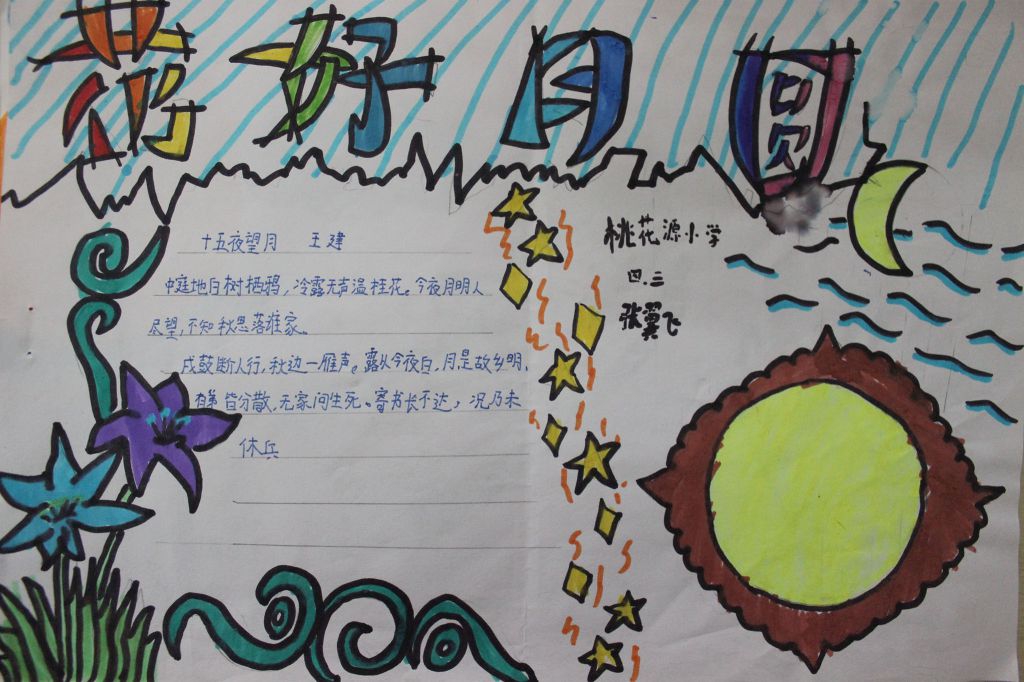 花好月圆
十五夜望月 王建
中庭地白树栖鸦，冷露无声温桂花。今夜月明人
尽望，不知秋思落谁家。
戍鼓断人行，秋边一雁声。露从今夜白，月是故乡明，
有弟皆分散，无家问生死。寄书长不达，况乃未
休兵
桃花源小学
四.三
张翼飞